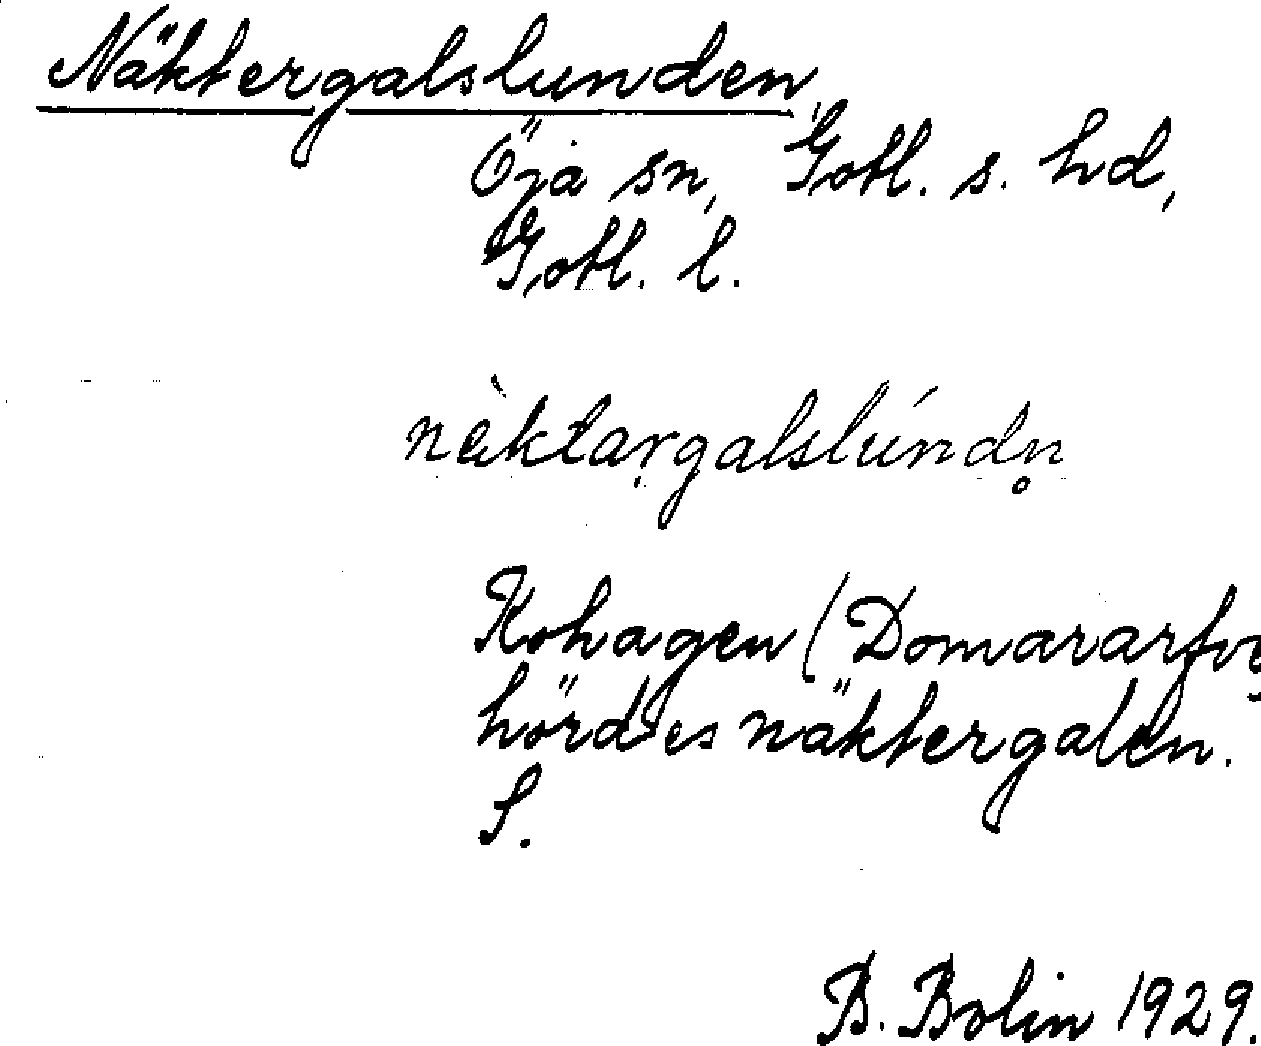 Näktergalslunden
Öja sn, Gotl. s. hd,
Gotl. l.
nèktaṛgalslúndn̥
Kohagen (Domararfve
hördes näktergalen.
S.
B. Bolin 1929.